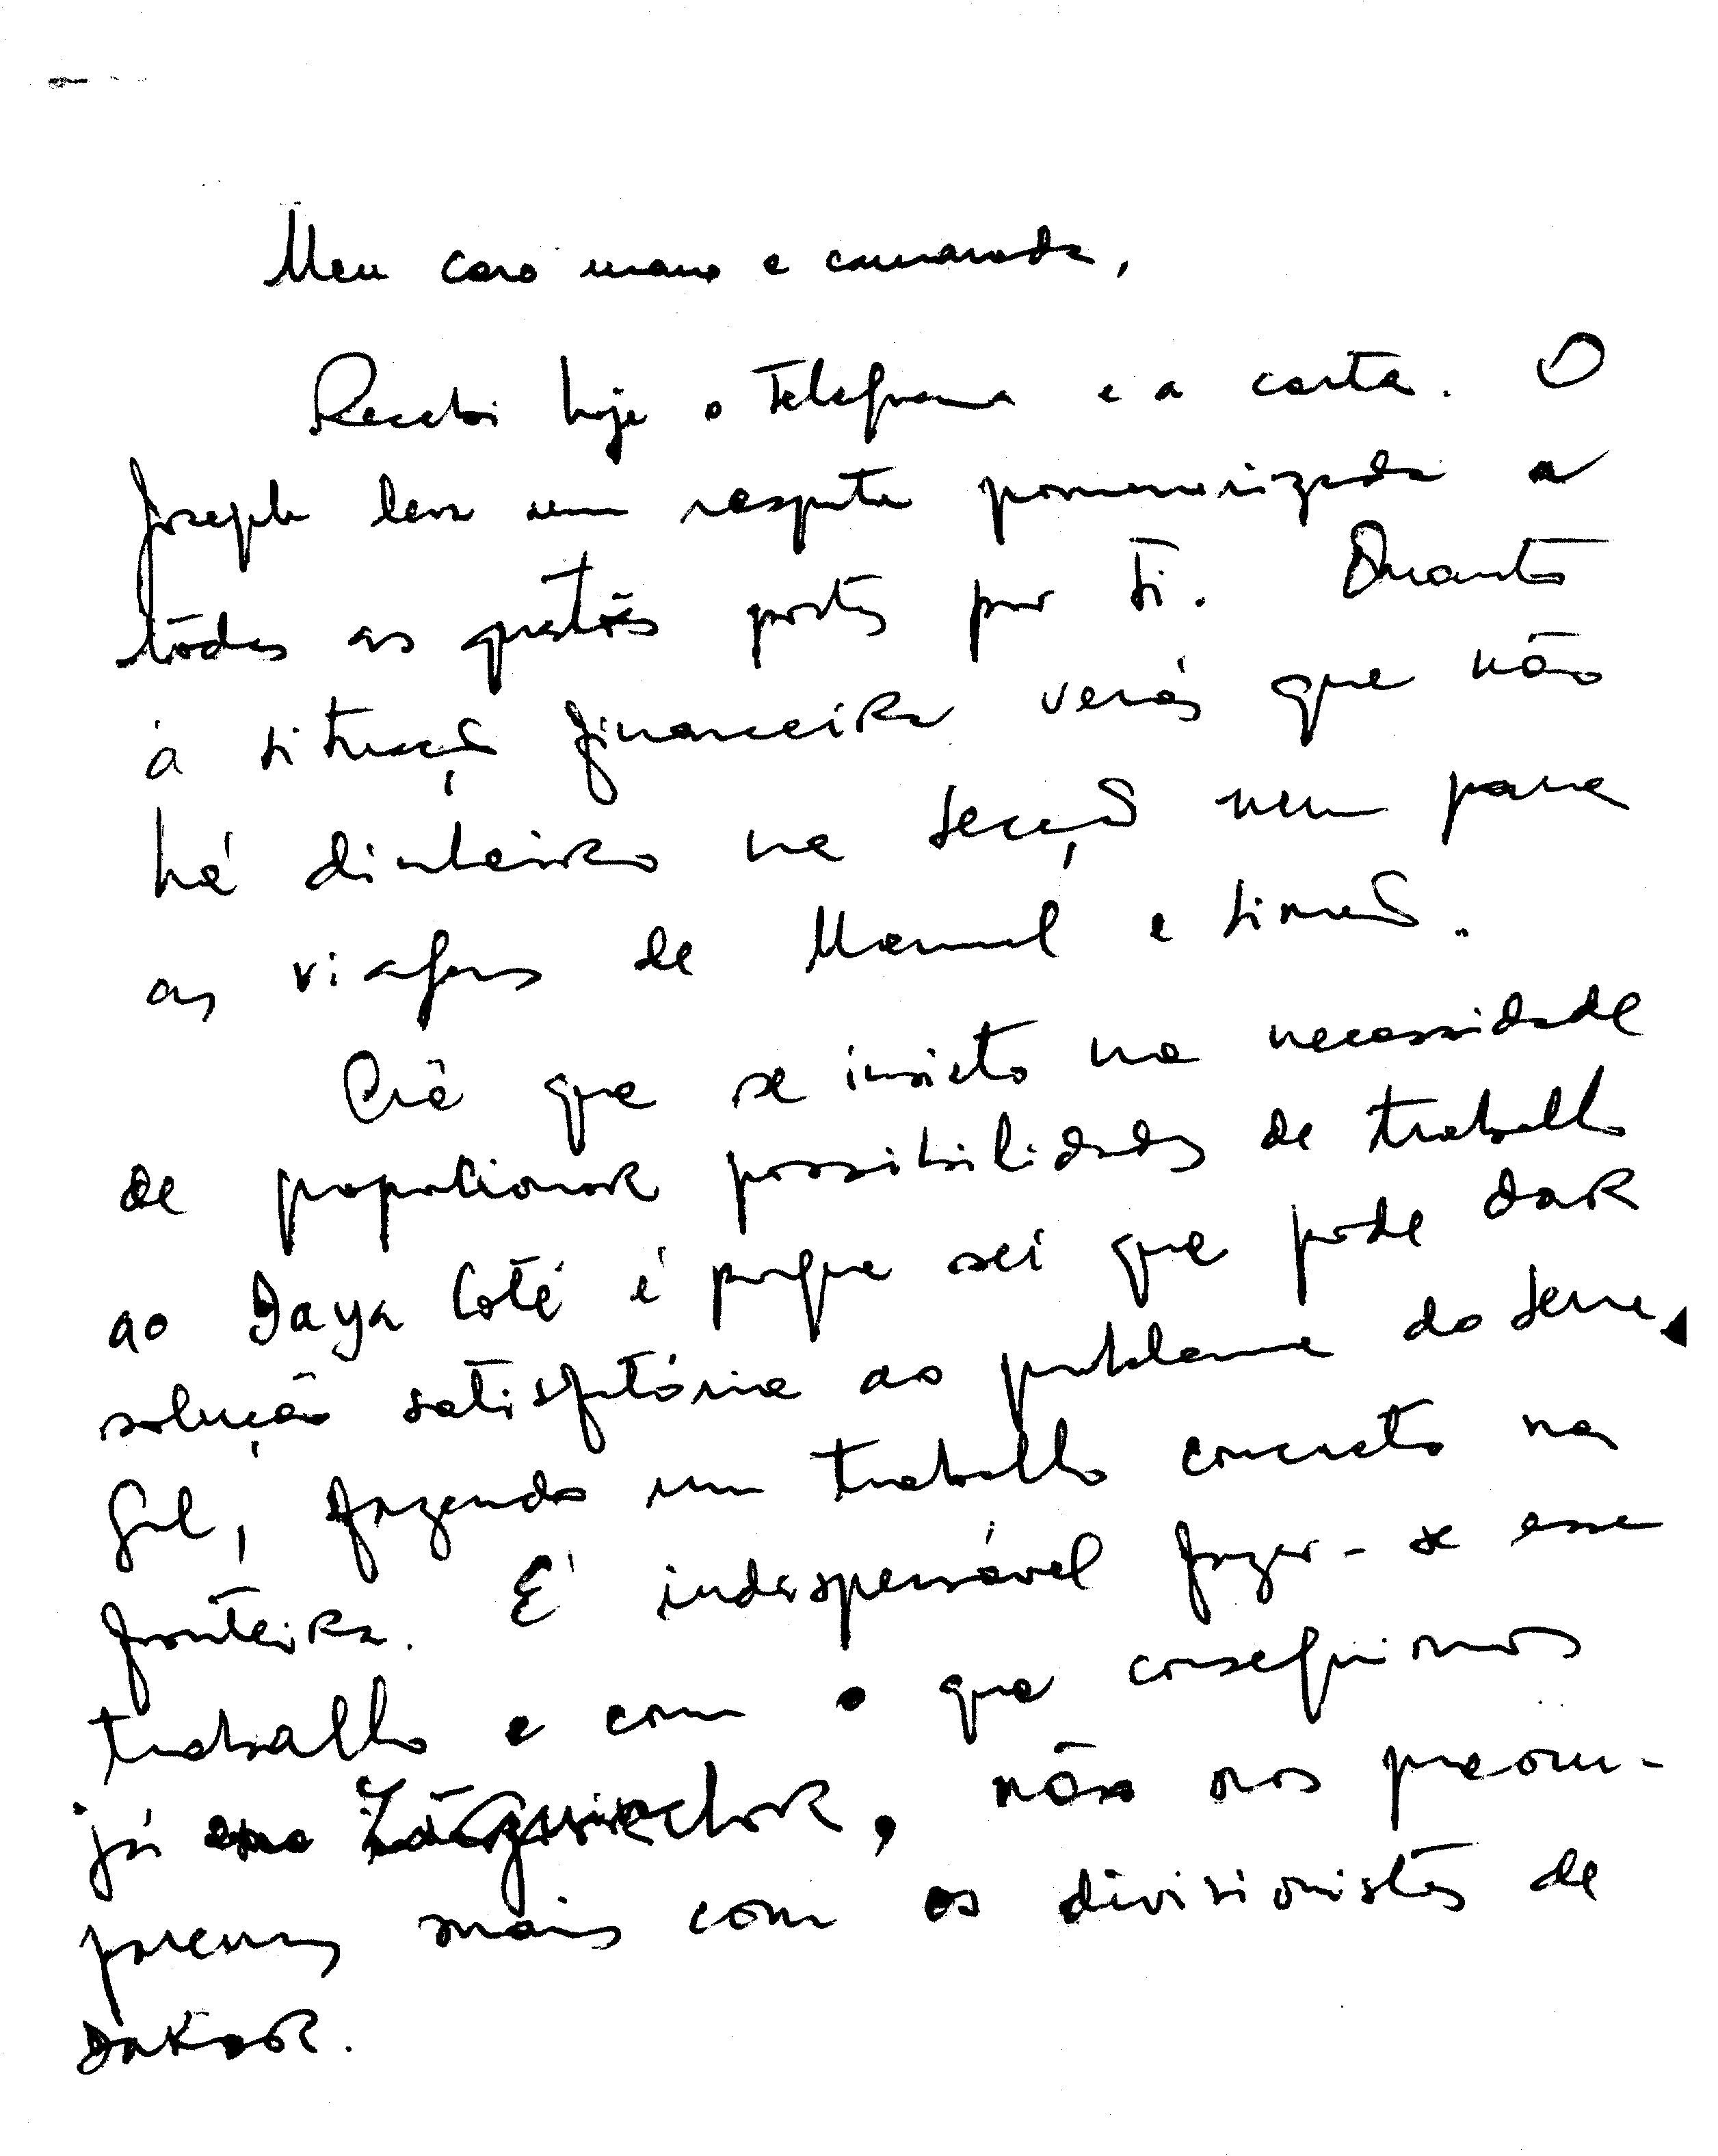 Meu caro mano e camarada,
Recebi hoje o telegrama e a carta. O
Joseph leva uma resposta pormenorizada a
tôdas as questões postas por ti. Quanto
à situação financeira verás que não
há dinheiro na secção nem para
as viagens de Manuel e Simão.
Crê que se insisto na necessidade
de proporcionar possibilidades de trabalho
ao Yaya Coté é porque sei que pode dar
solução satisfatória ao problema do Sene
gal, fazendo um trabalho concreto na
fronteira. É indispensável fazer-se esse
trabalho e com o que conseguimos
já em Ziguinchor, não nos preocu-
paremos mais com os divisionistas de
Dakar.